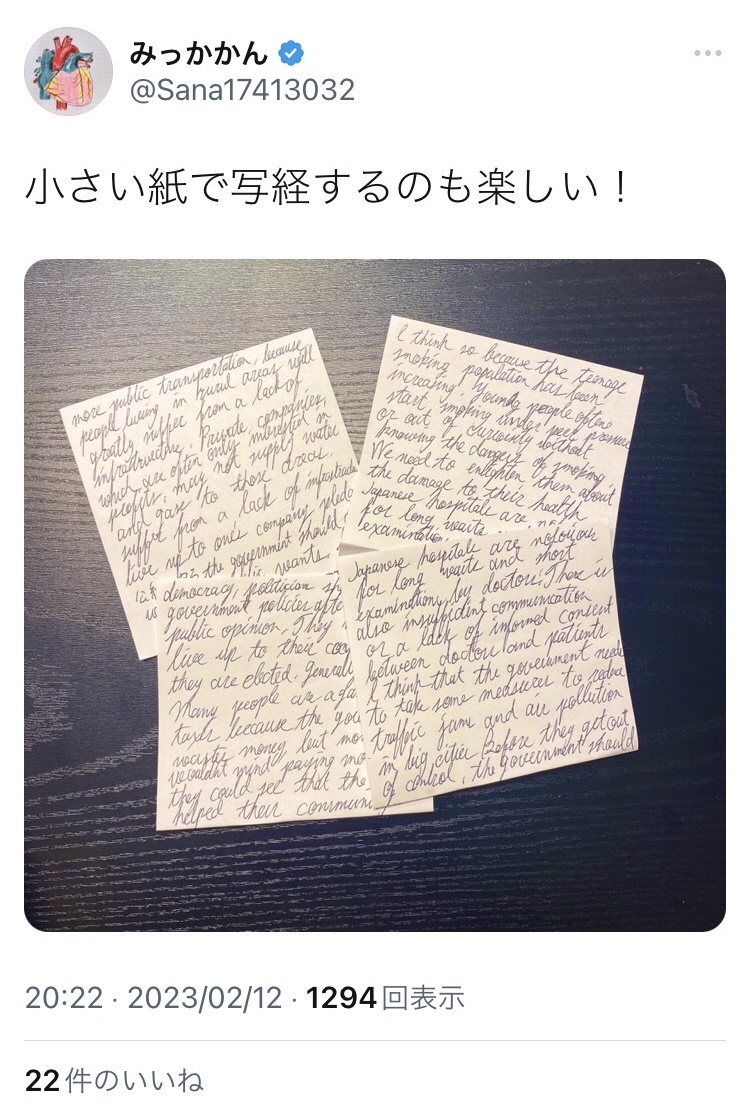 みっかかん
@Sana17413032
小さい紙で写経するのも楽しい！
more public transportation, because
people living in rural areas will
greatly suffer from a lack of
infrastructure. Private companies,
which are often only interested in
profits, may not supply water
and gas to those areas.
suffer from a lack of infrastructure
live up to one's company
the government should
wants.
I think so because the teenage
smoking population has been
increasing. Young people often
start smoking under peer pressure
or out of curiosity without
knowing the dangers of smoking.
We need to enlighten them about
the damage to their health
Japanese hospitals are
for long waits
examination
democracy, politician
government policies
public opinion. They
live up to their
they are elected.
Many people are
taxes because the
money, but
wouldn't mind paying
they could see that the
helped their
Japanese hospitals are notorious
for long waits and short
examinations by doctors. There is
also insufficient communication
or a lack of informed consent
between doctors and patients
I think that the government needs
to take some measures to reduce
traffic jams and air pollution
in big cities before they get out
of control. the government should
20:22 · 2023/02/12 · 1294回表示
22件のいいね